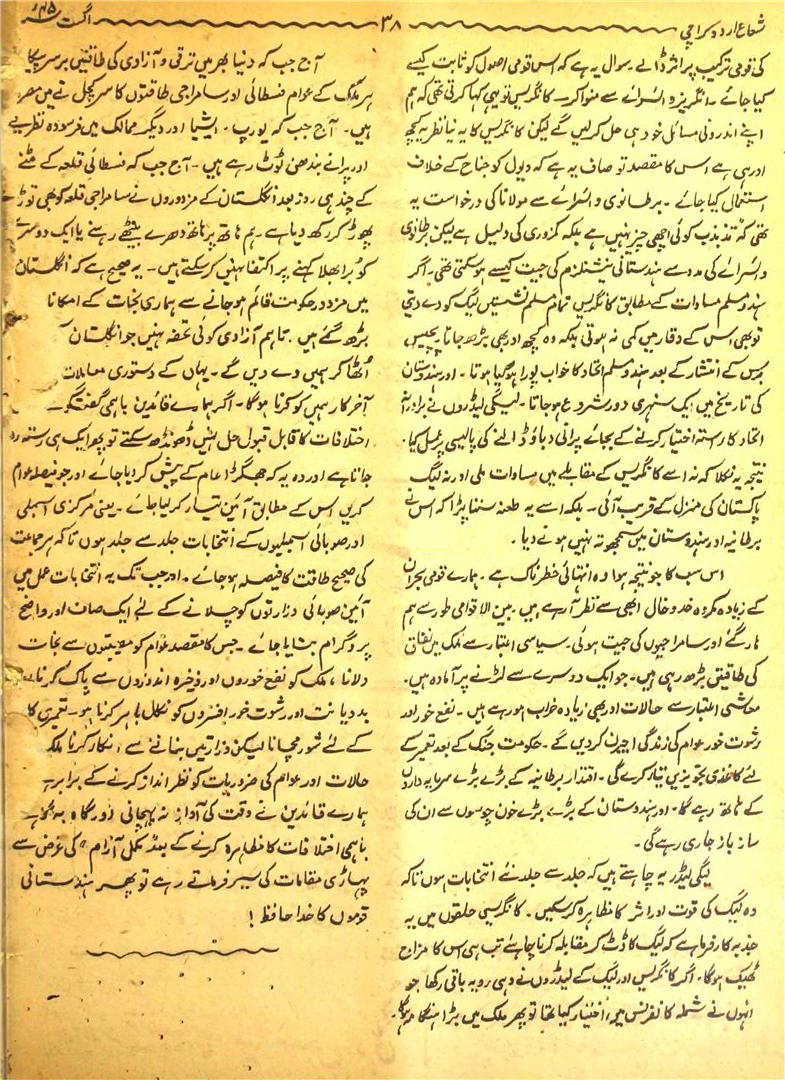 شعاع اردو کراچی
۳۸
اگست ۴۵ء
کی قومی ترکیب پر اثر ڈالے۔ سوال یہ ہے کہ اس قومی اصول کو ثابت کیسے
کیا جائے۔ انگریز وائسرائے سے منوا کر۔ کانگریس تو یہی کہا کرتی تھی کہ ہم
اپنے اندرونی مسائل خود ہی حل کر لیں گے لیکن کانگریس کا یہ نیا نظریہ کچھ
اور ہی ہے اس کا مقصد تو صاف یہ ہے کہ دیول کو جناح کے خلاف
استعمال کیا جائے۔ برطانوی وائسرائے سے مولانا کی درخواست یہ
تھی کہ تذبذب کوئی اچھی چیز نہیں ہے بلکہ کمزوری کی دلیل ہے لیکن برطانوی
وائسرائے کی مدد سے ہندستانی نیشنلزم کی جیت کیسے ہو سکتی تھی۔ اگر
ہندو مسلم مساوات کے مطابق کانگریس تمام مسلم نشستیں لیگ کو دے دیتی
تو بھی اس کے وقار میں کمی نہ ہوتی بلکہ وہ کچھ اور بھی بڑھ جاتا پچیس
برس کے انتشار کے بعد ہندو مسلم اتحاد کا خواب پورا ہو گیا ہوتا۔ اور ہندوستان
کی تاریخ میں ایک سنہری دور شروع ہو جاتا۔ لیگی لیڈروں نے برادرانہ
اتحاد کا رستہ اختیار کرنے کے بجائے پرانی دباؤ ڈالنے کی پالیسی پر عمل کیا۔
نتیجہ یہ نکلا کہ نہ اسے کانگریس کے مقابلے میں مساوات ملی اور نہ لیگ
پاکستان کی منزل کے قریب آئی۔ بلکہ اسے یہ طعنہ سننا پڑا کہ اس نے
برطانیہ اور ہندوستان میں سمجھوتہ نہیں ہونے دیا۔
اس سب کا جو نتیجہ ہوا وہ انتہائی خطرناک ہے۔ ہمارے قومی بحران
کے زیادہ مکروہ خدوخال ابھی سے نظر آرہے ہیں۔ بین الاقوامی طور سے ہم
ہار گئے اور سامراجیوں کی جیت ہوئی۔ سیاسی اعتبار سے ملک میں نفاق
کی طاقتیں بڑھ رہی ہیں۔ جو ایک دوسرے سے لڑنے پر آمادہ ہیں۔
معاشی اعتبار سے حالات اور بھی زیادہ خراب ہو رہے ہیں۔ نفع خور اور
رشوت خور عوام کی زندگی اجیرن کر دیں گے۔ حکومت جنگ کے بعد تعمیر کے
لئے کاغذی تجویزیں تیار کرے گی۔ اقتدار برطانیہ کے بڑے بڑے سرمایہ داروں
کے ہاتھ رہے گا۔ اور ہندوستان کے بڑے بڑے خون چوسوں سے ان کی
ساز باز جاری رہے گی۔
لیگی لیڈر یہ چاہتے ہیں کہ جلد سے جلد نئے انتخابات ہوں تاکہ
وہ لیگ کی قوت اور اثر کا مظاہرہ کر سکیں۔ کانگریسی حلقوں میں یہ
جذبہ کارفرما ہے کہ لیگ کا ڈٹ کر مقابلہ کرنا چاہئے تب ہی اس کا مزاج
ٹھیک ہوگا۔ اگر کانگریس اور لیگ کے لیڈروں نے وہی رویہ باقی رکھا جو
انہوں نے شملہ کانفرنس میں اختیار کیا تھا تو پھر ملک میں بڑا ہنگامہ ہوگا۔
آج جب کہ دنیا بھر میں ترقی و آزادی کی طاقتیں برسر پیکار
ہر ملک کے عوام فسطائی اور سامراجی طاقتوں کا سر کچل نے میں مصروف
ہیں۔ آج جب کہ یورپ۔ ایشیا اور دیگر ممالک میں فرسودہ نظریے
اور پرانے بندھن ٹوٹ رہے ہیں۔ آج جب کہ فسطائی قلعہ کے مٹنے
کے چند ہی روز بعد انگلستان کے مزدوروں نے سامراجی قلعہ کو بھی توڑ
پھوڑ کر رکھ دیا ہے۔ ہم ہاتھ پر ہاتھ دھرے بیٹھے رہنے یا ایک دوسرے
کو برا بھلا کہنے پر اکتفا نہیں کر سکتے ہیں۔ یہ صحیح ہے کہ انگلستان
میں مزدور حکومت قائم ہو جانے سے ہماری نجات کے امکانات
بڑھ گئے ہیں۔ تاہم آزادی کوئی تحفہ نہیں جو انگلستان
اٹھا کر ہمیں دے دیں گے۔ یہاں کے دستوری معاملات
آخر کار ہمیں کو کرنا ہوگا۔ اگر ہمارے قائدین باہمی گفتگو سے
اختلافات کا قابل قبول حل نہیں ڈھونڈھ سکتے تو پھر ایک ہی رستہ رہ
جاتا ہے اور وہ یہ کہ جھگڑا عوام کے پیش کر دیا جائے اور جو فیصلہ عوام
کریں اس کے مطابق آئین تیار کر لیا جائے۔ یعنی مرکزی اسمبلی
اور صوبائی اسمبلیوں کے انتخابات جلد سے جلد ہوں تاکہ ہر جماعت
کی صحیح طاقت کا فیصلہ ہو جائے۔ اور جب تک یہ انتخابات عمل میں
آئیں صوبائی وزارتوں کو چلانے کے لئے ایک صاف اور واضح
پروگرام بنایا جائے۔ جس کا مقصد عوام کو مصیبتوں سے نجات
دلانا، ملک کو نفع خوروں اور ذخیرہ اندوزوں سے پاک کرنا
بددیانت اور رشوت خور افسروں کو نکال باہر کرنا ہو۔ تعمیری کام
کے لئے شور مچانا لیکن وزارتیں بنانے سے انکار کرنا ملک
حالات اور عوام کی ضروریات کو نظر انداز کرنے کے برابر ہے
ہمارے قائدین نے وقت کی آواز نہ پہچانی اور گاہ بہ گاہ
باہمی اختلافات کا مظاہرہ کرنے کے بعد "مکمل آرام" کی غرض سے
پہاڑی مقامات کی سیر فرماتے رہے تو پھر ہندستانی
قوموں کا خدا حافظ!